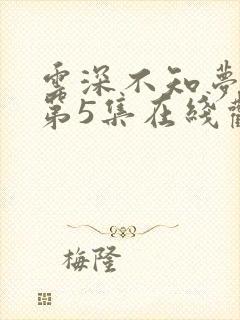 雲深不知夢
第5集在綫觀
梅隆